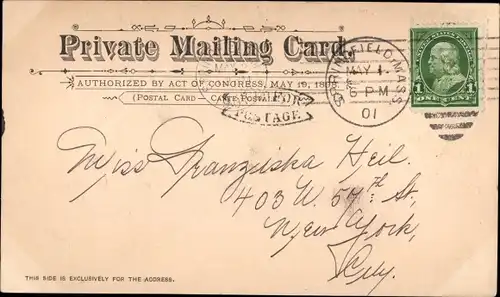 Private Mailing Card.
AUTHORIZED BY ACT OF CONGRESS, MAY 19, 1898.
(POSTAL CARD – CARTE POSTALE)
FOR
POSTAGE
SPRINGFIELD, MASS.
MAY 1
6 PM
01
1 1
ONE CENT
Miss Franziska Heil.
403 W. 57th St,
New York,
City.
THIS SIDE IS EXCLUSIVELY FOR THE ADDRESS.